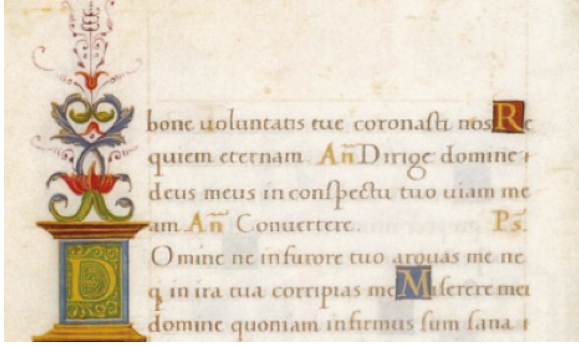 bone uoluntatis tue coronasti nos Re
quiem eternam. Añ Dirige domine
deus meus in conspectu tuo uiam me
am Añ Conuertere. Ps.
Domine ne in furore tuo arguas me ne
q in ira tua corripias me Miserere mei
domine quoniam infirmus sum sana